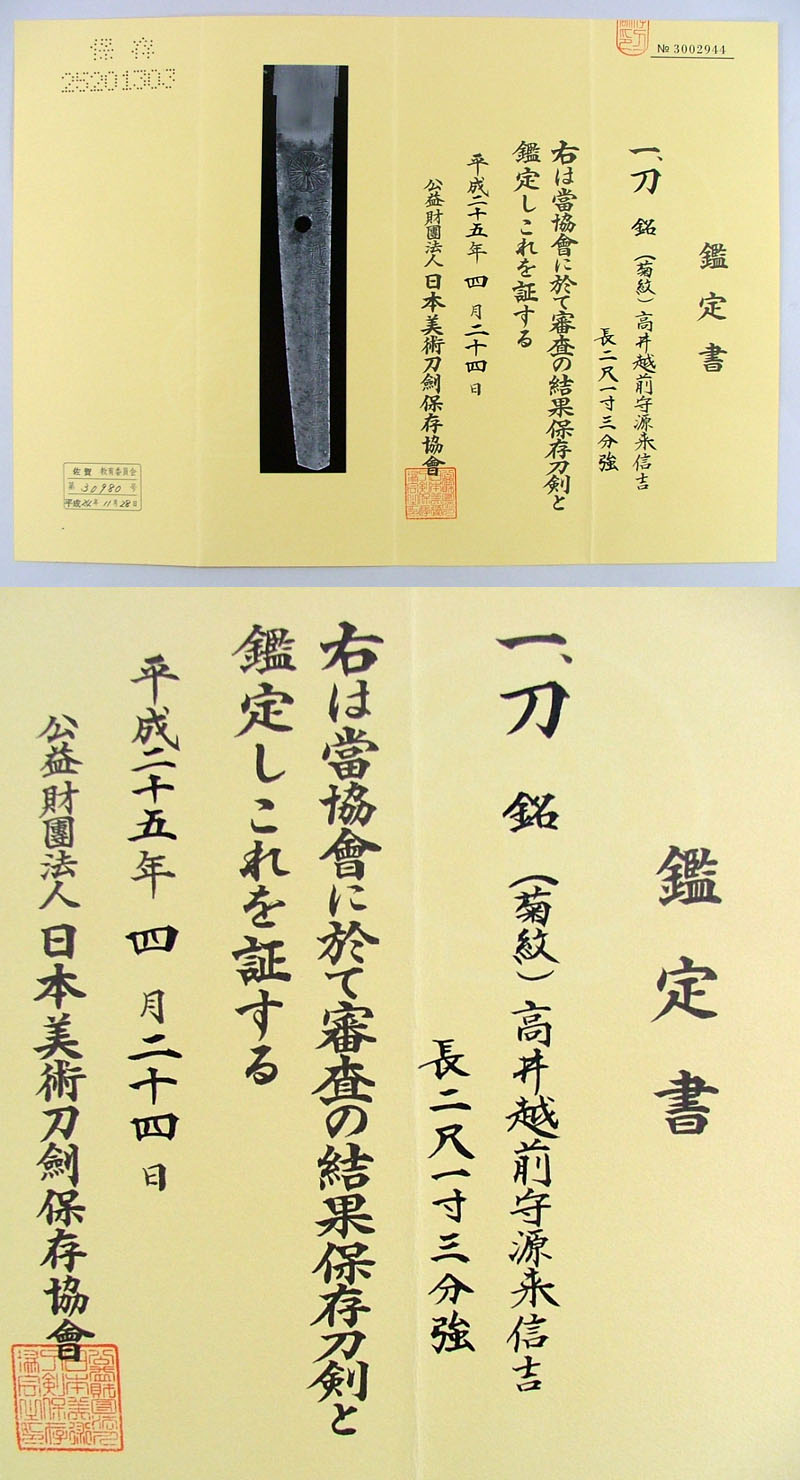 № 3002944
鑑定書
一、刀 銘 (菊紋)高井越前守源来信吉
長二尺一寸三分強
右は當協會に於て審査の結果保存刀剣と
鑑定しこれを証する
平成二十五年 四 月二十四日
公益財團法人 日本美術刀劍保存協會
保存
25201303
佐賀 教育委員会
第 30980 号
平成24年11月28日
鑑定書
一、刀 銘 (菊紋)高井越前守源来信吉
長二尺一寸三分強
右は當協會に於て審査の結果保存刀剣と
鑑定しこれを証する
平成二十五年 四 月二十四日
公益財團法人 日本美術刀劍保存協會